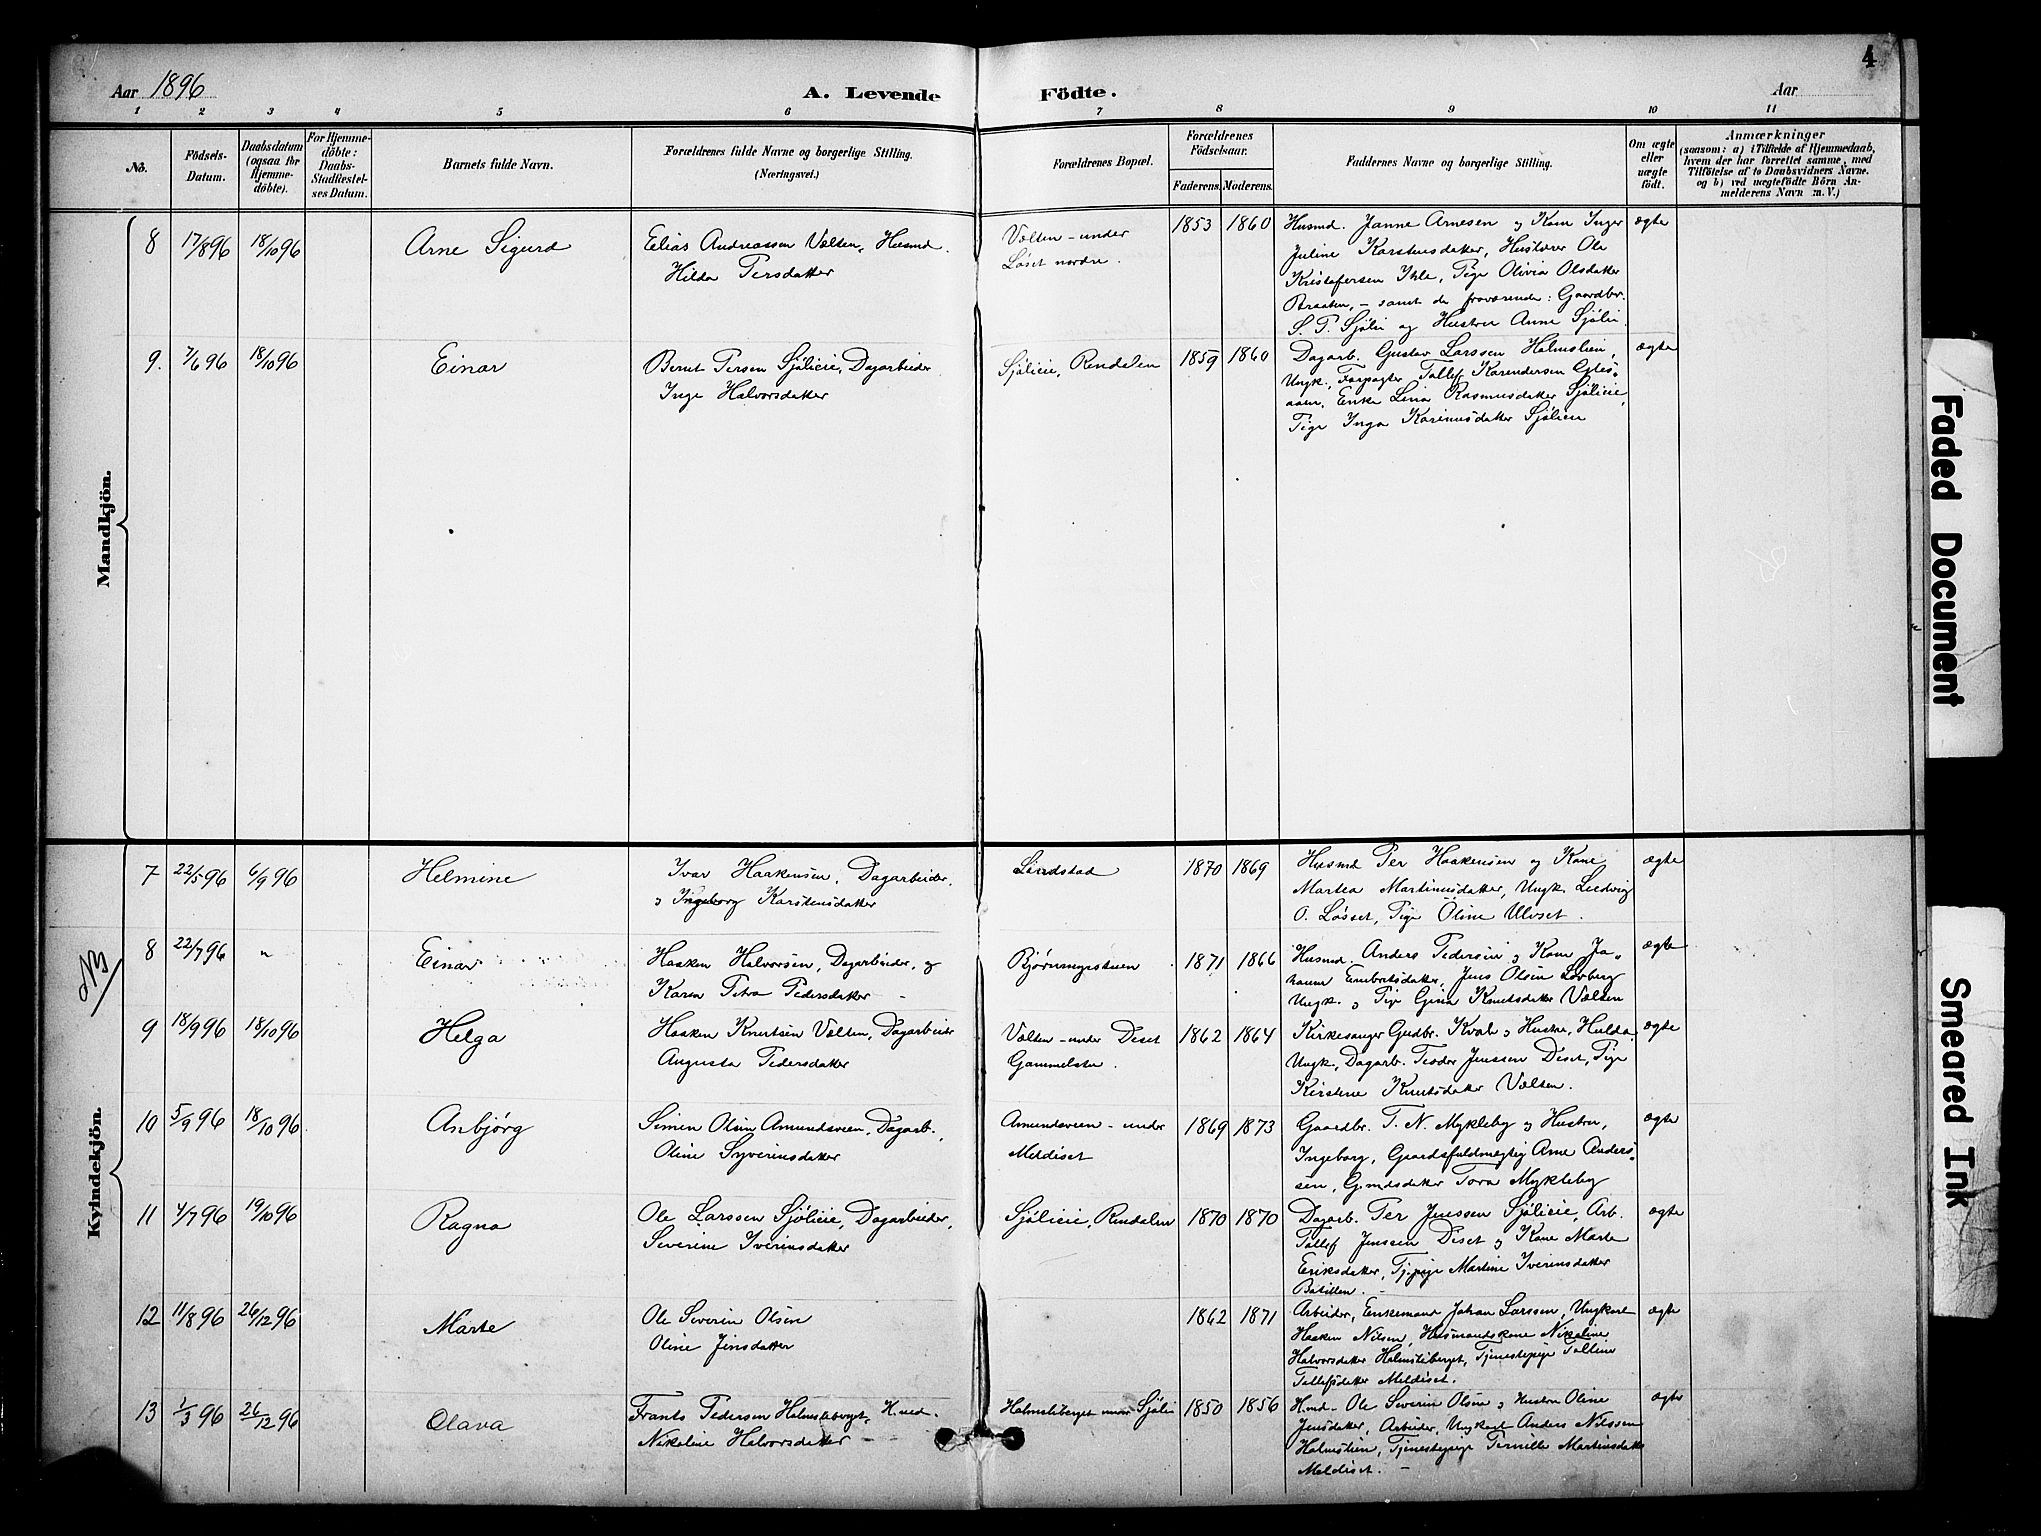 4
Aar 1896
A. Levende Födte.
Aar
1 2 3 4 5 6 7 8 9 10 11
No.
Födsels-
Datum.
Daabsdatum
(ogsaa for
Hjemme-
döbte).
For Hjemme-
döbte:
Daabs-
Stadfæstel-
ses Datum.
Barnets fulde Navn.
Forældrenes fulde Navne og borgerlige Stilling.
(Næringsvei.)
Forældrenes Bopæl.
Forældrenes
Födselsaar.
Faderens. Moderens.
Faddernes Navne og borgerlige Stilling.
Om ægte
eller
uægte
födt.
Anmærkninger
(saasom: a) i Tilfælde af Hjemmedaab,
hvem der har forrettet samme, med
Tilföielse af to Daabsvidners Navne.
og b) ved uægtefödte Börn An-
melderens Navn m. V.)
Mandkjön.
8 17/8 96 18/10 96 Arne Sigurd
Elias Andreassen Vælten, Husmd.
Hilda Persdatter
Vælten - under
Löset nordre.
1853 1860
Husmd. Janne Arnesen og Kone Inger
Juline Karstensdatter, Huslærer Ole
Kristofersen Ihle, Pige Olivia Olsdatter
Braaten, - samt de fraværende: Gaardbr.
S. P. Sjölie og Hustru Anne Sjölie.
ægte
9. 7/6 96 18/10 96 Einar
Bernt Persen Sjöliei, Dagarbeider
Inge Halvorsdatter
Sjöliei, Rendalen
1859 1860
Dagarb. Gustav Larssen Holmslien,
Ungk., Forpagter Tollef Karendersen
Enke Lina Rasmusdatter Sjöliei,
Pige Inga Karinusdatter Sjölien
ægte
Kvindekjön.
7 22/5 96 6/9 96 Helmine
Ivar Haakensen, Dagarbeider,
og Ingeborg Karstensdatter
Lindstad
1870 1869
Husmd Per Haakensen og Kone
Martea Martinusdatter, Ungk. Ludvig
O. Lösset, Pige Oline Ulvset.
ægte
NB
8 22/7 96 " Einar
Haaken Halvorsen, Dagarbeider, og
Karen Petra Pedersdatter
Bjørnmyrstuen
1871 1866
Husmd. Anders Pedersen og Kone Jo-
hanne Embretsdatter, Jens Olsen Løvberg
Ungk. og Pige Gina Knutsdatter Vælten
ægte
9 18/9 96 18/10 96 Helga
Haaken Knutsen Vælten, Dagarbeider
Augusta Pedersdatter
Vælten - under Diset
Gammelstu.
1862 1864
Kirkesanger Gudbr. Kvale og Hustru, Hulda,
Ungk., Dagarb. Peder Jenssen Diset, Pige
Kirstine Knutsdatter Vælten.
ægte
10 5/9 96 18/10 96 Anbjørg
Simen Olsen Amundsveen, Dagarb.,
Oline Syverinsdatter
Amundsveen - under
Meldiset
1869 1873
Gaardbr. T. N. Mykleby og Hustru,
Ingeborg, Gaardsfuldmegtig Arne Anders-
sen, Gmdsdatter Tora Mykleby
ægte
11 4/7 96 19/10 96 Ragna
Ole Larssen Sjöliei, Dagarbeider,
Severine Iverinsdatter
Sjöliei, Rendalen
1870 1870
Dagarb. Per Jenssen Sjöliei, Arb.
Tollef Jenssen Diset og Kone Marte
Eriksdatter, Tj.pige Martine Iverinsdatter
ægte
12 11/8 96 26/12 96 Marte
Ole Severin Olsen
Oline Jensdatter
1862 1871
Arbeider, Enkemand Johan Larssen, Ungkarl
Haaken Nilsen, Husmandskone Nikoline
Halvorsdatter Holmsliberget, Tjenestepige Tolline
Tollefsdatter Meldiset.
ægte
13 1/3 96 26/12 96 Olava
Frants Pedersen Holmsliberget, H.md.
Nikoline Halvorsdatter
Holmsliberget under Sjöli
1850 1856
H.md. Ole Severin Olsen og Hustru Oline
Jensdatter, Arbeider, Ungkarl Anders Nilssen
Holmslien, Tjenestepige Pernille Martinsdatter
Meldiset. -
ægte
Faded Document
Smeared Ink